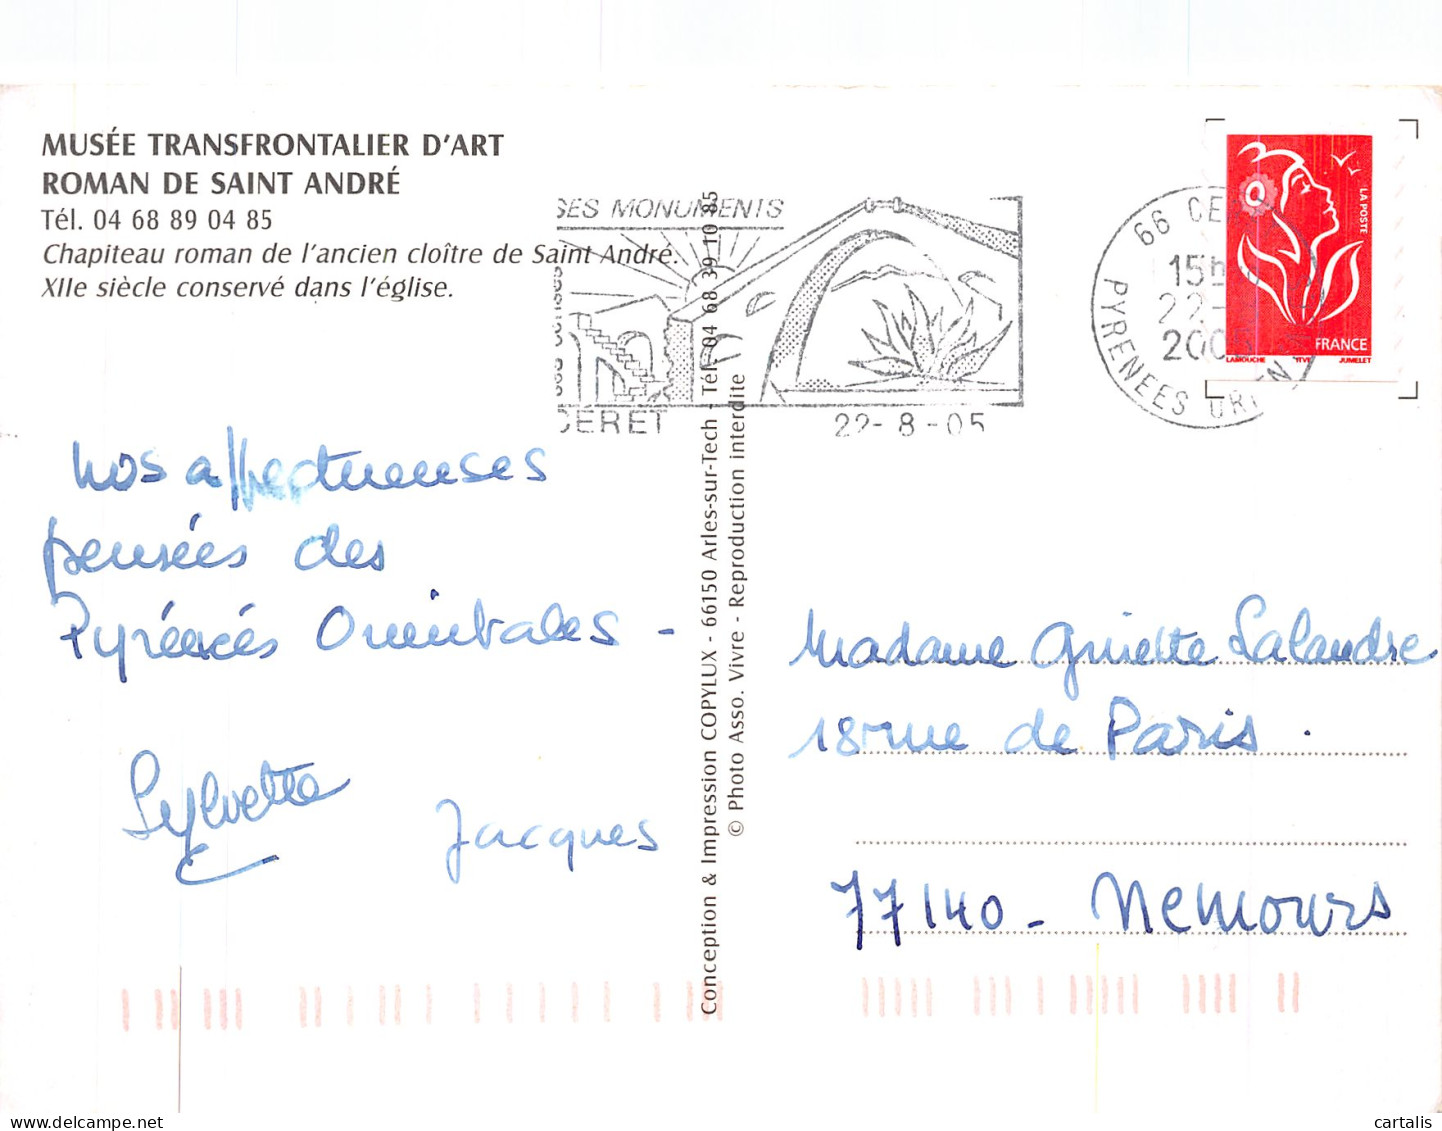 MUSÉE TRANSFRONTALIER D'ART
ROMAN DE SAINT ANDRÉ
Tél. 04 68 89 04 85
Chapiteau roman de l'ancien cloître de Saint André.
XIIe siècle conservé dans l'église.
SES MONUMENTS
CERET
22-8-05
66 CE
15h
22-
2005
PYRENEES ORIENT
LA POSTE
FRANCE
LAMOUCHE
ITVF
JUMELET
nos affectueuses
pensées des
Pyrénées Orientales -
Sylvette
Jacques
Conception & Impression COPYLUX - 66150 Arles-sur-Tech - Tél. 04 68 39 10 85
© Photo Asso. Vivre - Reproduction interdite
Madame Ginette Lalandre
18 rue de Paris.
77140 - Nemours
cartalis